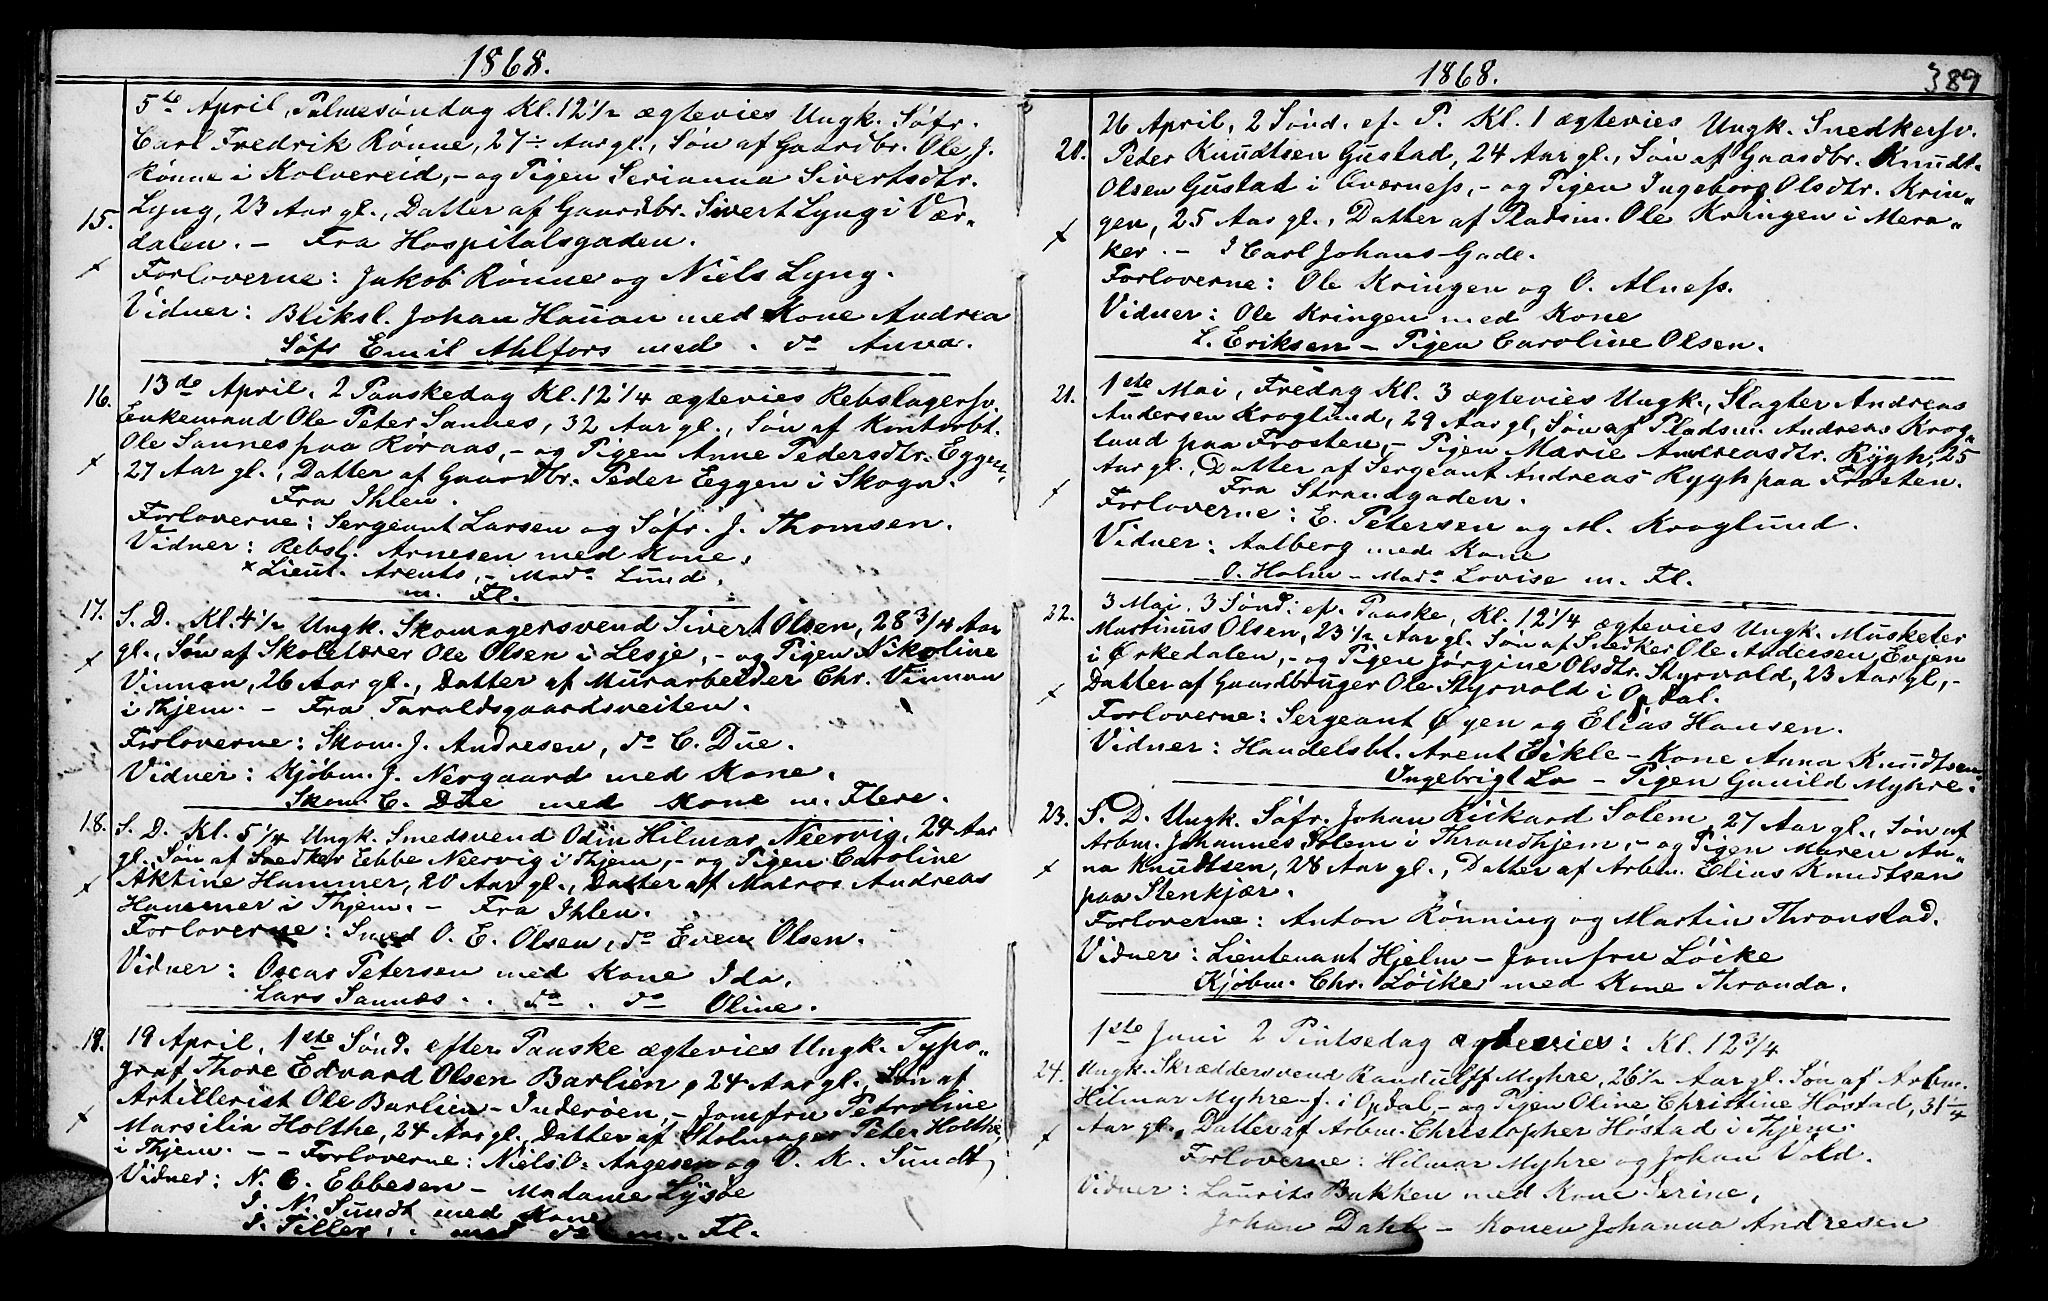 1868.
5te April, Palmesöndag Kl. 12 1/2 ægtevies Ungk. Söfr.
Carl Fredrik Rönne, 27 1/2 Aar gl., Sön af Gaardbr. Ole J.
Rönne i Kolvereid, - og Pigen Serianna Sivertsdtr.
15. Lyng, 23 Aar gl., Datter af Gaardbr. Sivert Lyng i Vær-
dalen. - Fra Hospitalsgaden.
Forloverne: Jakob Rönne og Niels Lyng.
Vidner: Bliksl. Johan Hauan med Kone Andrea
Söfr Emil Ahlfors med . do Anna.
16. 13de April. 2 Paaskedag Kl. 12 1/4 ægtevies Rebslagersv.
Enkemand Ole Peter Sannes, 32 Aar gl., Sön af Kontorbt.
Ole Sannes paa Röraas, - og Pigen Anne Pedersdtr. Eggen,
27 Aar gl., Datter af Gaardbr. Peder Eggen i Skogn.
Fra Ihlen.
Forloverne: Sergeant Larsen og Söfr. J. Thomsen.
Vidner: Rebsl. Arnesen med Kone.
Lieut. Arents, - Mada Lund.
m. Fl.
17. S. D. Kl. 4 1/2 Ungk. Skomagersvend Sivert Olsen, 28 3/4 Aar
gl., Sön af Skolelærer Ole Olsen i Lesje, - og Pigen Nikoline
Vinnan, 26 Aar gl., Datter af Murarbeider Chr. Vinnan
i Thjem. - Fra Taraldsgaardsveiten.
Forloverne: Skom. J. Andresen, do C. Due.
Vidner: Kjöbm. J. Nergaard med Kone.
Skom. C. Due med Kone m. Flere.
18. S. D. Kl. 5 1/4 Ungk. Smedsvend Odin Hilmar Neervig, 24 Aar
gl. Sön af Snedker Ebbe Neervig i Thjem, - og Pigen Caroline
Aktine Hammer, 20 Aar gl., Datter af Matros Andreas
Hammer i Thjem. - Fra Ihlen.
Forloverne: Smed O. E. Olsen, do Even Olsen.
Vidner: Oscar Petersen med Kone Ida.
Lars Sannæs . . do . do Oline.
19. 19 April, 1ste Sönd. efter Paaske ægtevies Ungk. Typo-
graf Thore Edvard Olsen Barlien, 24 Aar gl., Sön af
Artillerist Ole Barlien - Inderöen, - Jomfru Petroline
Marsilia Holthe, 24 Aar gl., Datter af Stolmager Peter Holthe
i Thjem. - - Forloverne: Niels O. Aagesen og O. K. Sundt,
Vidner: N. C. Ebbesen - Madame Lysöe
J. N. Sundt med Kone
J. Tiller . . med do m. Fl.
1868.
389
26 April, 2 Sönd. ef. P. Kl. 1 ægtevies Ungk. Snedkersv.
20. Peder Knudtsen Gustad, 24 Aar gl., Sön af Gaardbr. Knudt
Olsen Gustad i Qværness, - og Pigen Ingeborg Olsdtr. Krin-
gen, 25 Aar gl., Datter af Pladsm. Ole Kringen i Mera-
ker. - I Carl Johans-Gade.
Forloverne: Ole Kringen og O. Alness.
Vidner: Ole Kringen med Kone
L. Eriksen - Pigen Caroline Olsen.
21. 1ste Mai, Fredag Kl. 3 ægtevies Ungk., Slagter Andreas
Andersen Kroglund, 29 Aar gl, Sön af Pladsm. Andreas Krog-
lund paa Frosten, - Pigen Marie Andreasdtr. Rygh, 25
Aar gl., Datter af Sergeant Andreas Rygh paa Frosten.
Fra Strandgaden.
Forloverne: E. Petersen og M. Kroglund.
Vidner: Aalberg med Kone
O. Holm - Mada Lovise m. Fl.
22. 3 Mai, 3 Sönd. ef. Paaske, Kl. 12 1/4 ægtevies Ungk. Musketer
Martinus Olsen, 23 1/2 Aar gl. Sön af Snedker Ole Andersen Evjen
i Ørkedalen, - og Pigen Jörgine Olsdtr. Styrvold, 23 Aar gl, -
Datter af Gaardbruger Ole Styrvold i Opdal.
Forloverne: Sergeant Øyen og Elias Hansen.
Vidner: Handelsbt. Arent Eikle - Kone Anna Knudtsen
Ingebrigt Lo - Pigen Gunild Myhre.
23. S. D. Ungk. Söfr. Johan Rickard Solem, 27 Aar gl., Sön af
Arbm. Johannes Solem i Throndhjem, - og Pigen Maren An-
na Knudtsen, 28 Aar gl., Datter af Arbm. Elias Knudtsen
paa Stenkjær.
Forloverne: Anton Rönning og Martin Thronstad.
Vidner: Lieutenant Hjelm - Jomfru Löike
Kjöbm. Chr. Löike med Kone Thronda.
1ste Juni 2 Pintsedag ægtevies: Kl. 12 3/4
24. Ungk. Skræddersvend Randulff Myhre, 26 1/2 Aar gl. Sön af Arbm.
Hilmar Myhre J. i Opdal, - og Pigen Oline Christine Höstad, 31 1/4
Aar gl., Datter af Arbm. Christopher Höstad i Thjem.
Forloverne: Hilmar Myhre og Johan Vold.
Vidner: Laurits Bakken med Kone Serine,
Johan Dahl - Konen Johanna Andresen